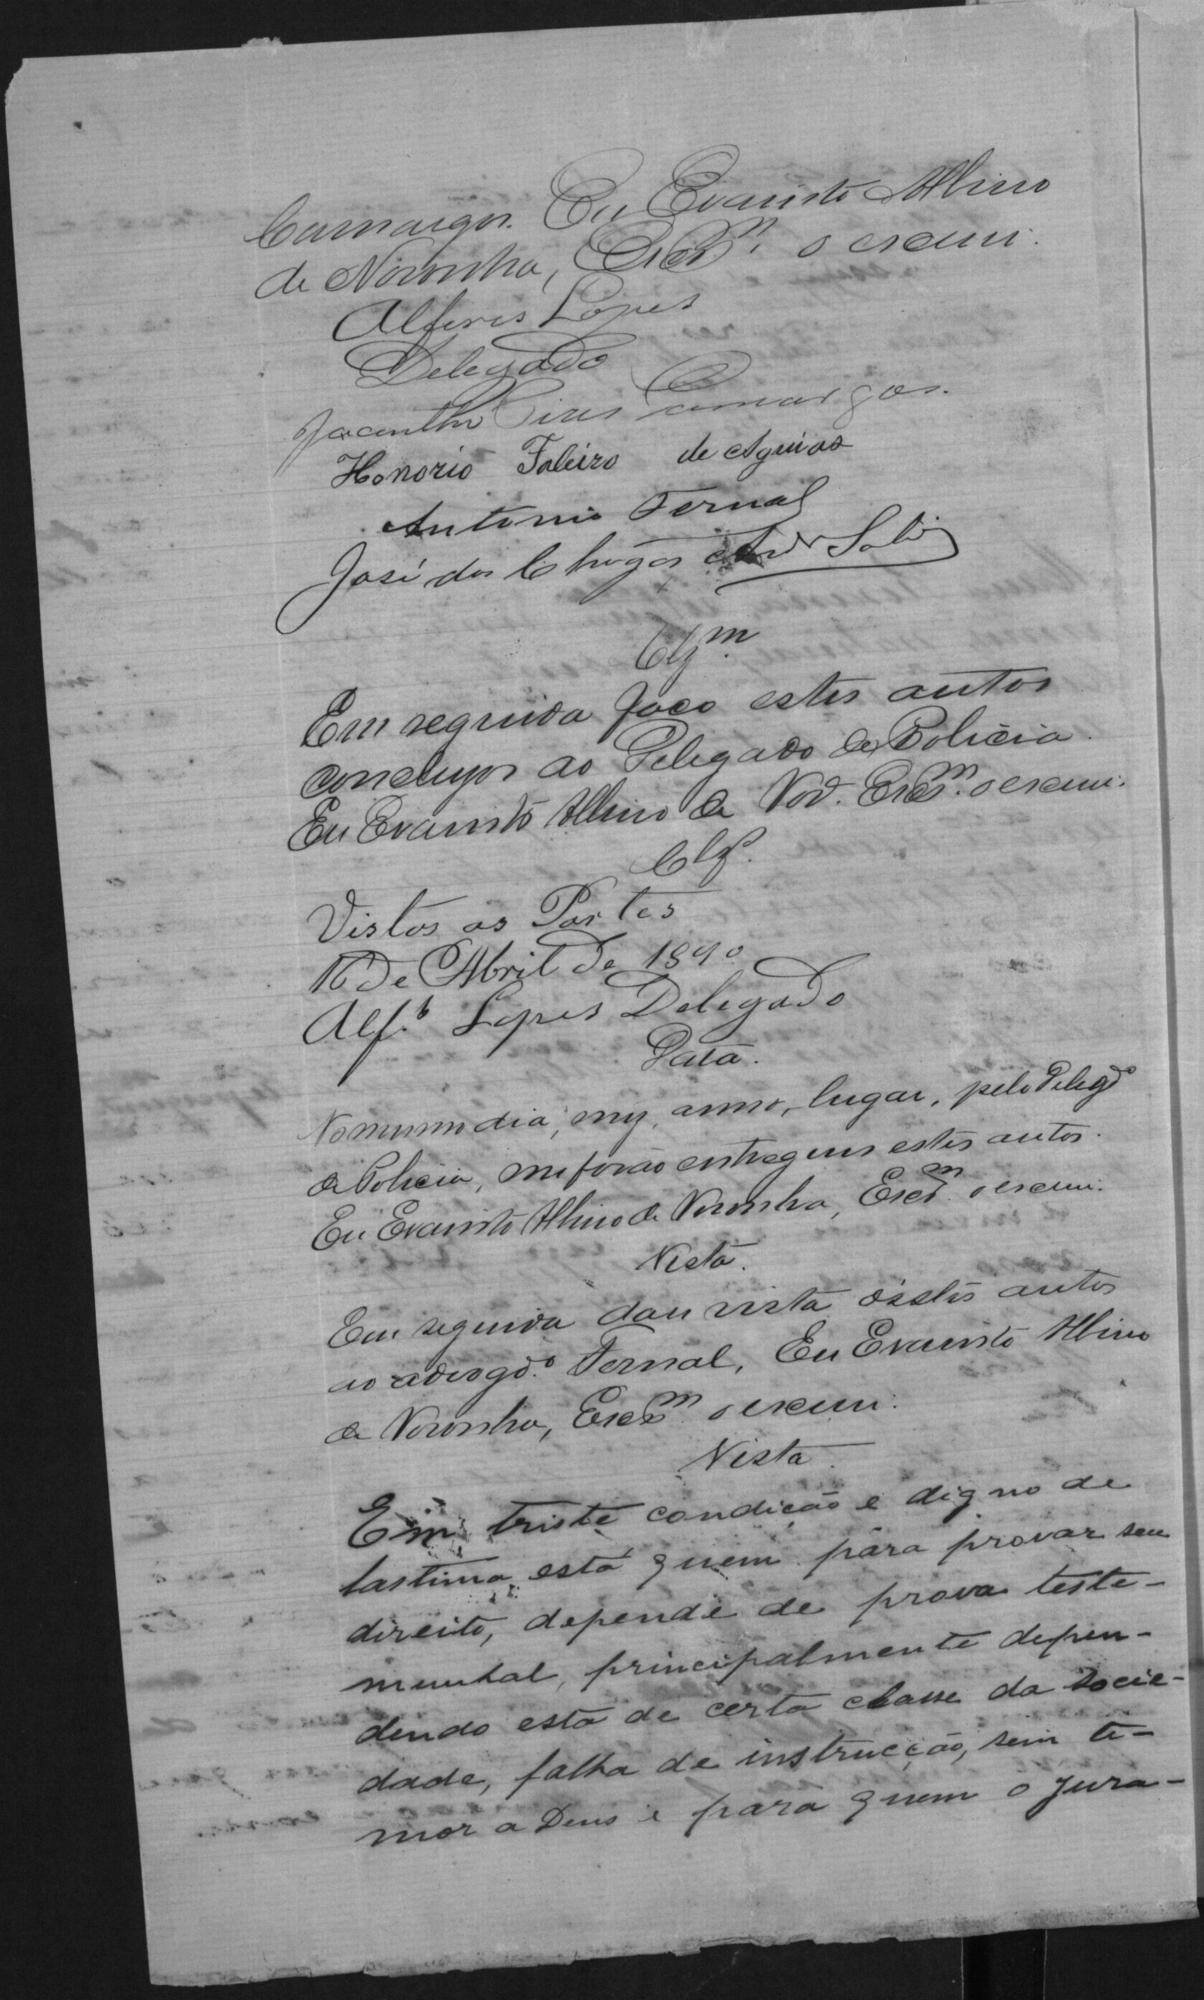 Camargos. Eu Evaristo Albino
de Noronha, Escr.m o escrevi.
Alferes Lopes
Delegado
Jacintho Pires Camargos.
Honorio Faleiro de Aguiar
Antonio Fernal
José das Chagas
Clz.m
Em seguida faco estes autos
concluzos ao Delegado de Policia.
Eu Evaristo Albino de Nor. Escr.m o escrevi.
Clz.
Vistos as Partes
16 de Abril de 1890
Alf.s Lopes Delegado
Data.
No mesmo dia, mez, anno, lugar, pelo Delegdo
de Policia, me forão entregues estes autos.
Eu Evaristo Albino de Noronha, Escr.m o escrevi.
Vista.
Em seguida dou vista destes autos
ao advogdo. Fernal, Eu Evaristo Albino
de Noronha, Escr.m o escrevi.
Vista.
Em triste condicão e digno de
lastima está quem para provar seu
direito, depende de prova teste-
munhal, principalmente depen-
dendo esta de certa classe da socie-
dade, falha de instrucção, sem te-
mor a Deus e para quem o jura-